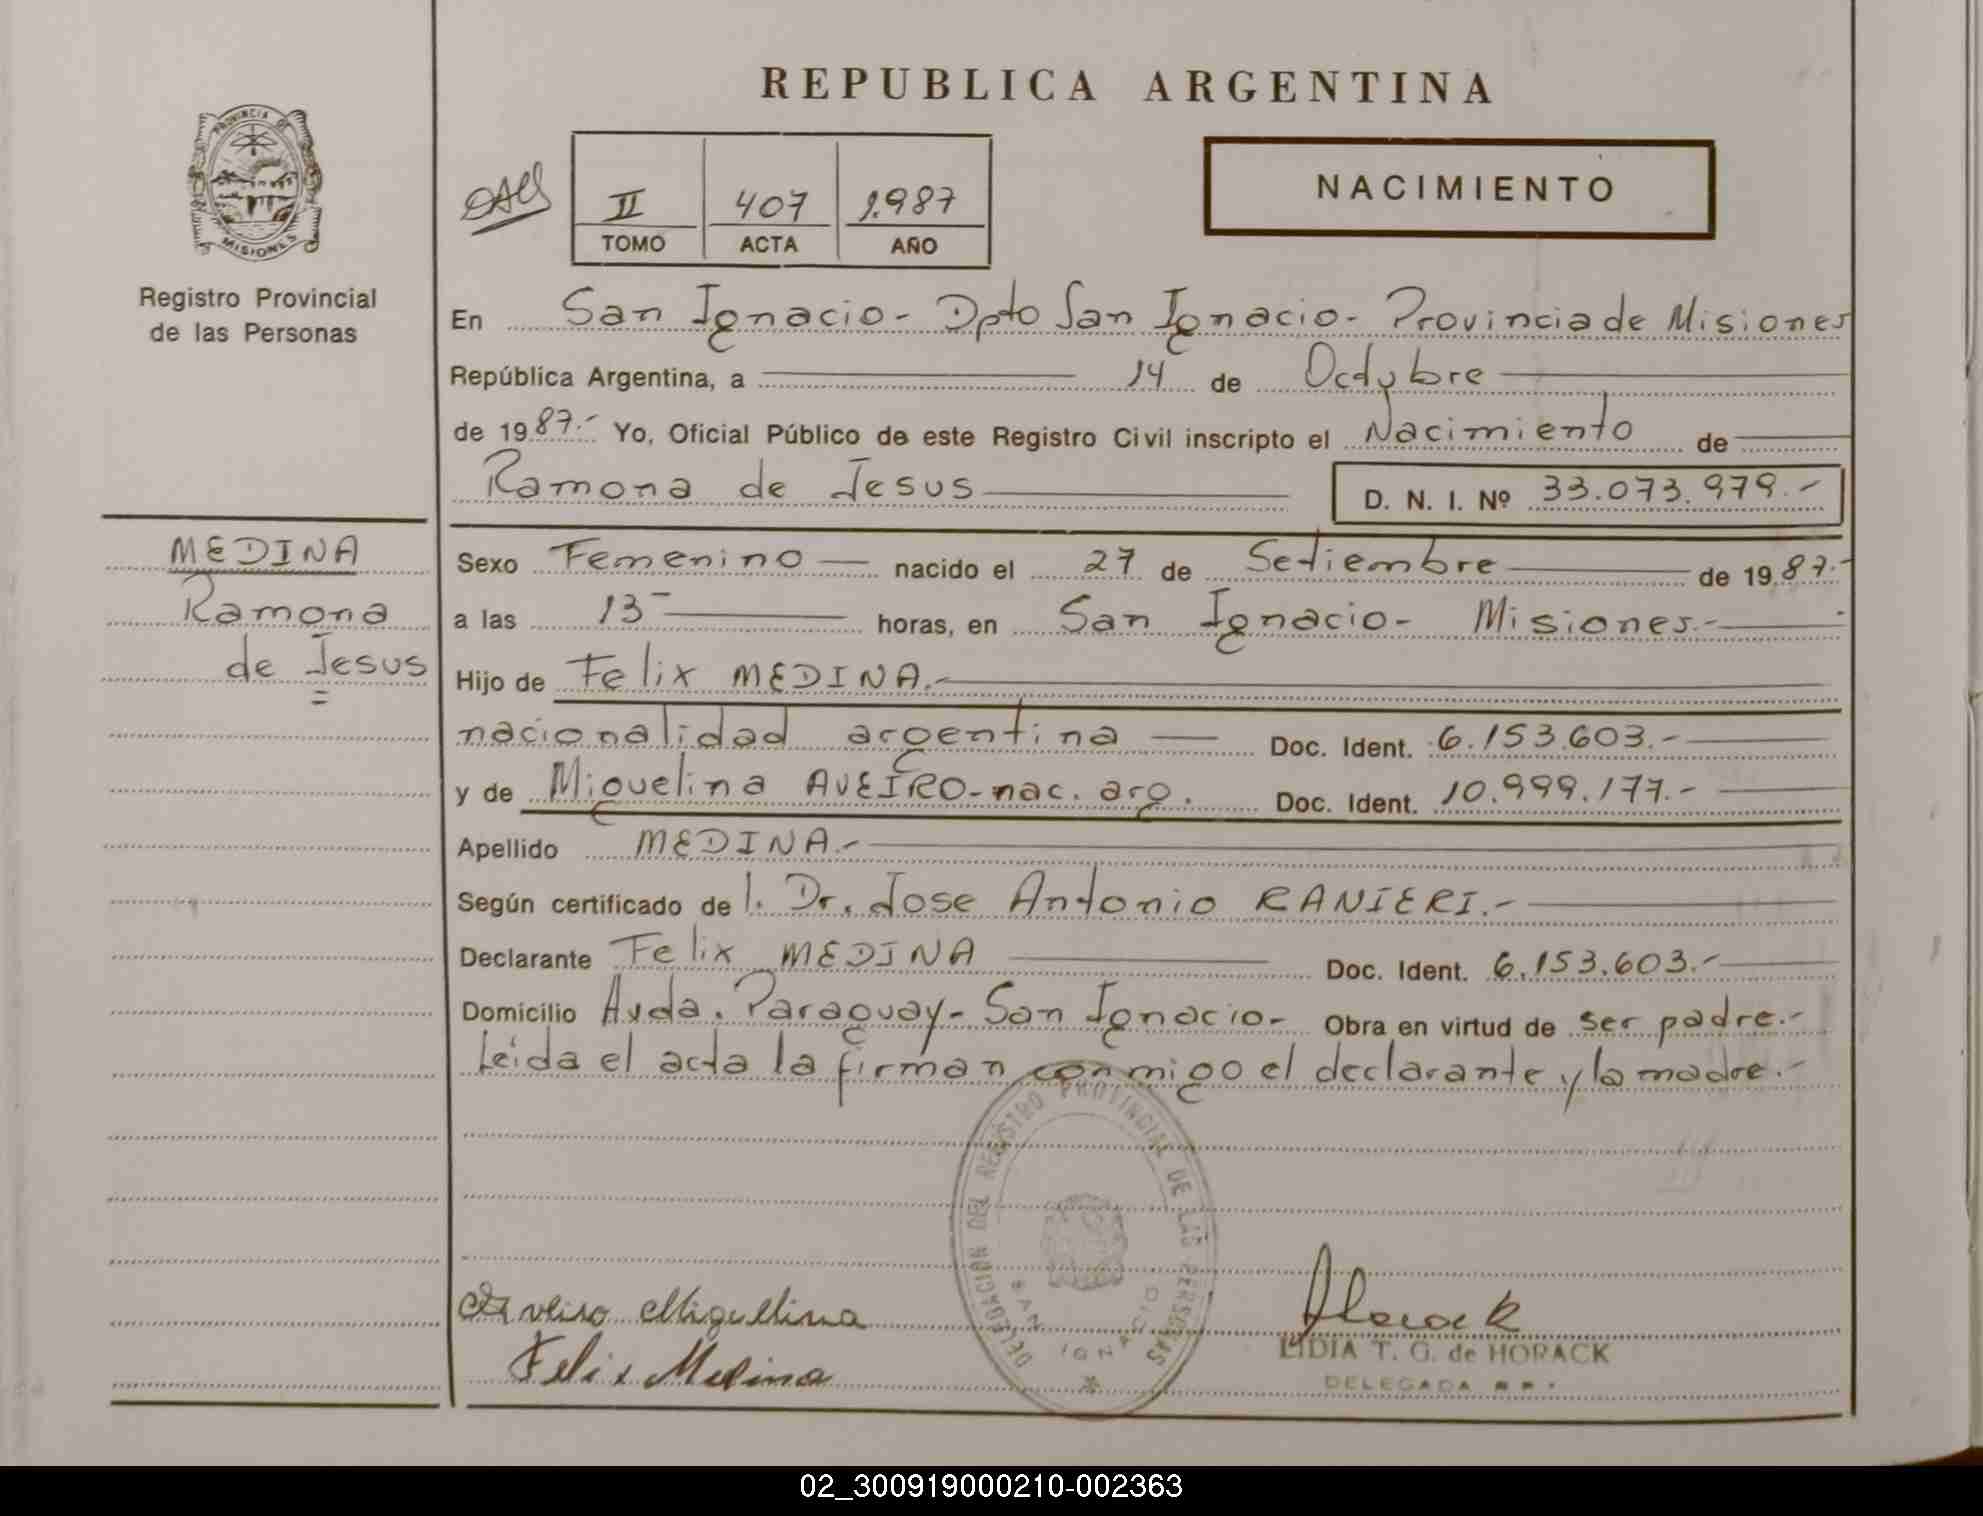 REPUBLICA ARGENTINA
PROVINCIA DE MISIONES
Registro Provincial
de las Personas
II 407 1.987
TOMO ACTA AÑO
NACIMIENTO
En San Ignacio- Dpto San Ignacio- Provincia de Misiones
República Argentina, a 14 de Octubre
de 1987.- Yo, Oficial Público de este Registro Civil inscripto el Nacimiento de
Ramona de Jesus D. N. I. Nº 33.073.979.-
MEDINA
Ramona
de Jesus
Sexo Femenino nacido el 27 de Setiembre de 1987.-
a las 13 horas, en San Ignacio- Misiones.-
Hijo de Felix MEDINA.-
nacionalidad argentina Doc. Ident. 6.153.603.-
y de Miguelina AVEIRO-nac. arg. Doc. Ident. 10.999.177.-
Apellido MEDINA.-
Según certificado de l. Dr. Jose Antonio RANIERI.-
Declarante Felix MEDINA Doc. Ident. 6.153.603.-
Domicilio Avda. Paraguay- San Ignacio- Obra en virtud de ser padre.-
Leida el acta la firman conmigo el declarante y la madre.-
DELEGACION DEL REGISTRO PROVINCIAL DE LAS PERSONAS
SAN IGNACIO
Aveiro Miguelina
Felix Medina
Horack
LIDIA T. G. de HORACK
DELEGADA
02_300919000210-002363